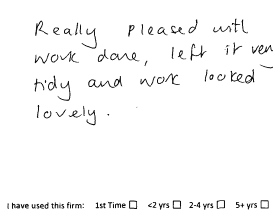 Really pleased with
work done, left it very
tidy and work looked
lovely.
I have used this firm: 1st Time ☐ <2 yrs ☐ 2-4 yrs ☐ 5+ yrs ☐